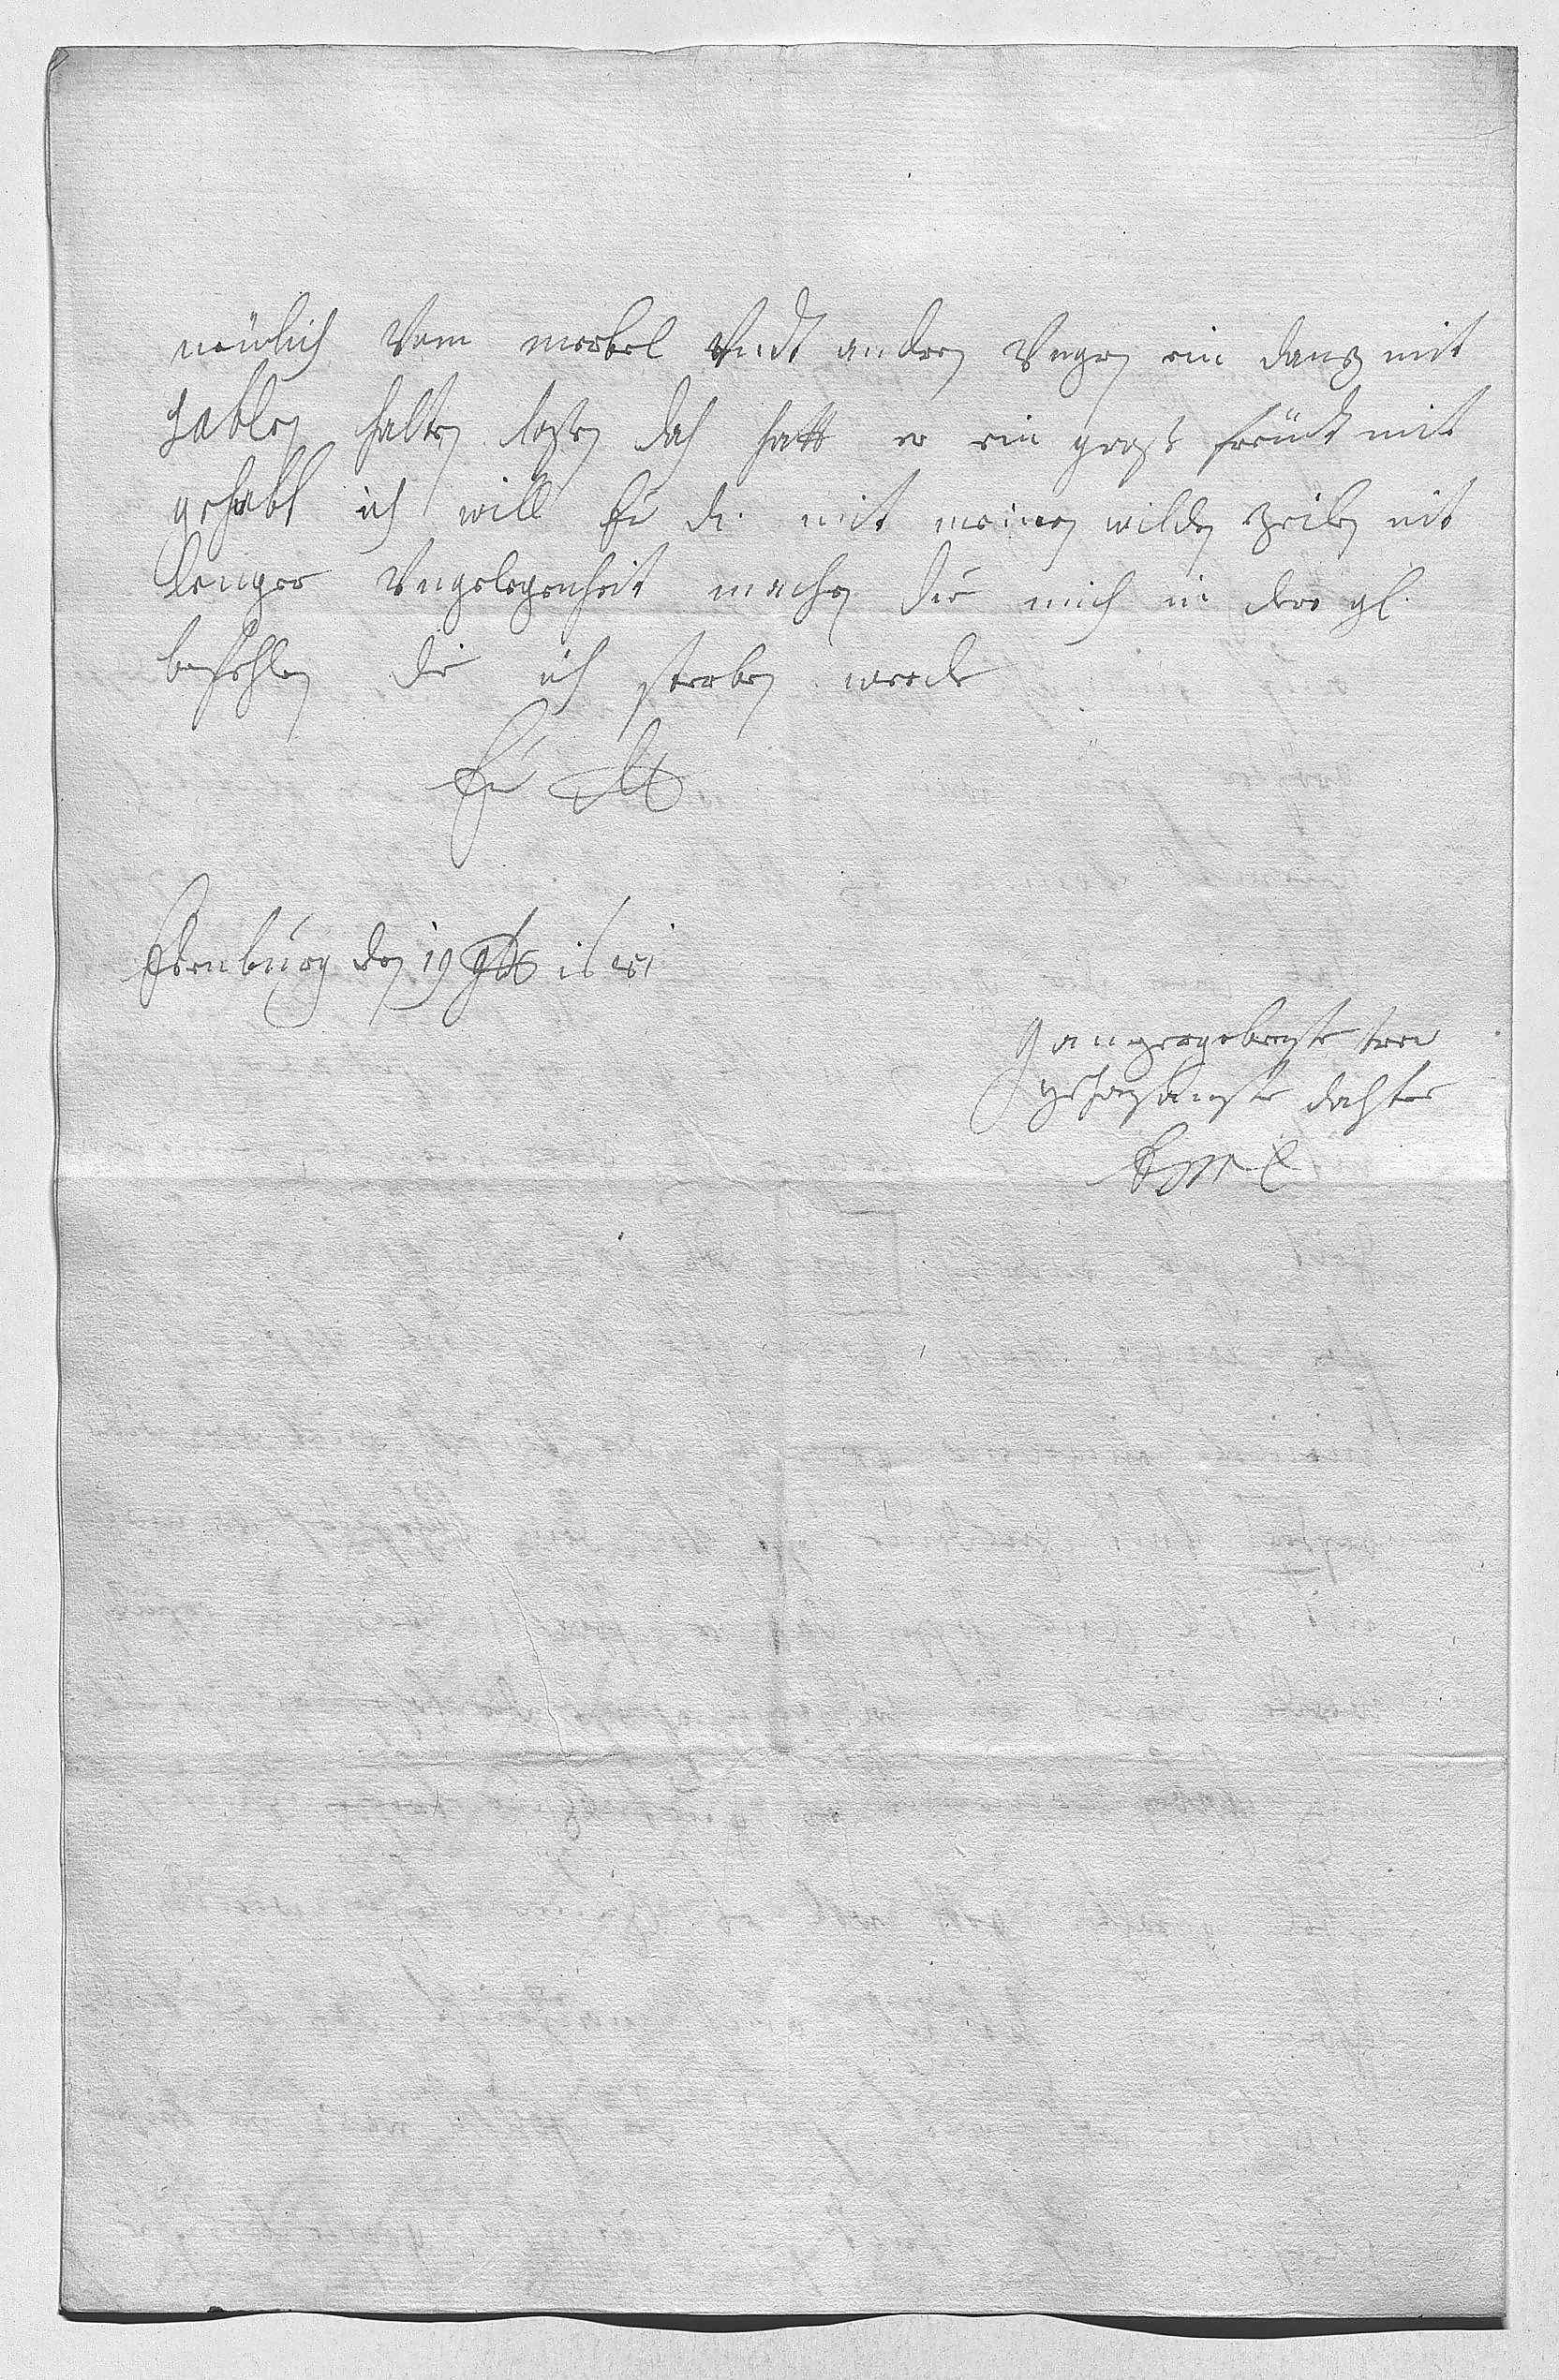 neulich vom merbel undt andern Ungern ein danz mit
sablen halten laßen daß hatt er ein große freüdt mit
gehabt ich will Eu dl. mit meinen wilden zeilen nit
lenger ungelegenheit machen die mich in dero gl.
befehlen die ich sterben werde
Eu
Ebenburg den 19
ganzergebenste treu
gehorsambste dochter